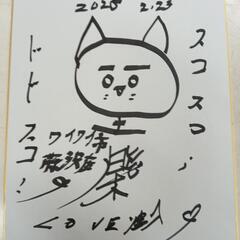 2025 2.23
スコスコ!
ドドスコ!
ワイワイ市
藤沢店
楽
LOVE注入